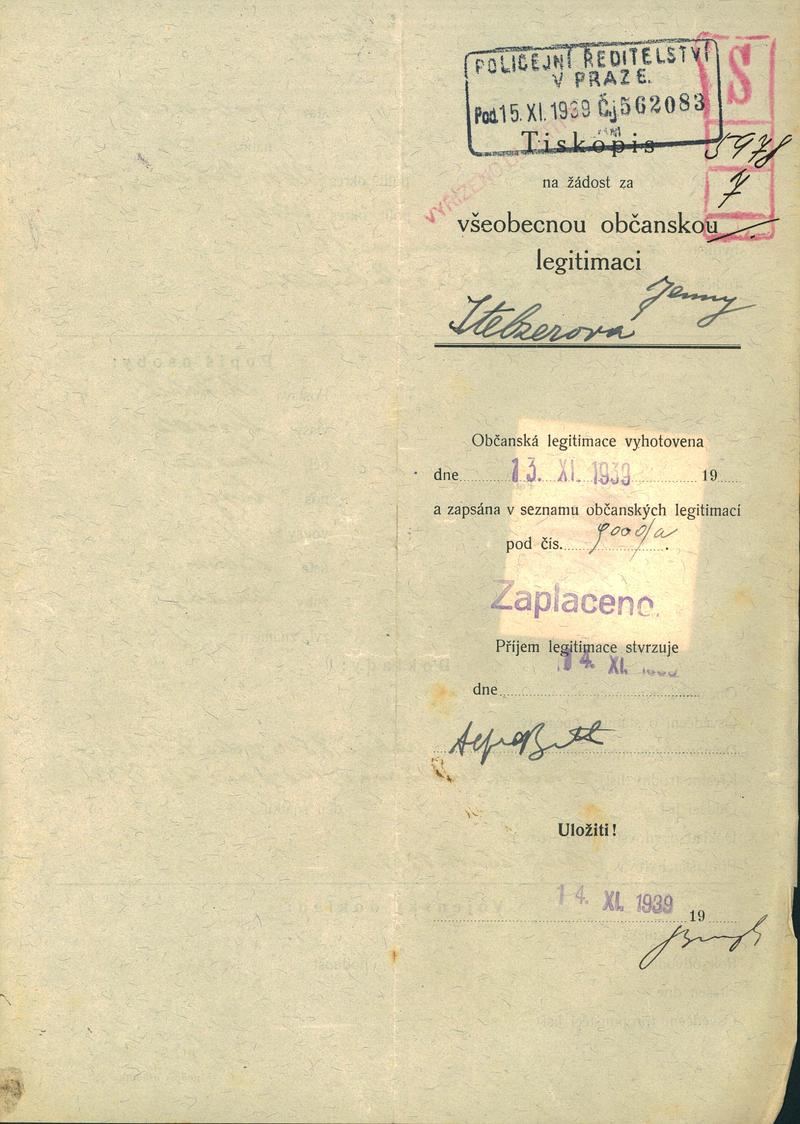 POLICEJNÍ ŘEDITELSTVÍ
V PRAZE.
Pod. 15. XI. 1939 Čj 562083
S
Tiskopis
5978
7
na žádost za
VYŘÍZENO
všeobecnou občanskou
legitimaci
Jenny
Stelzerova
Občanská legitimace vyhotovena
dne 13. XI. 1939 19
a zapsána v seznamu občanských legitimací
pod čís. 9000/a .
Zaplaceno.
Příjem legitimace stvrzuje
14. XI.
dne
Uložiti!
14. XI. 1939 19